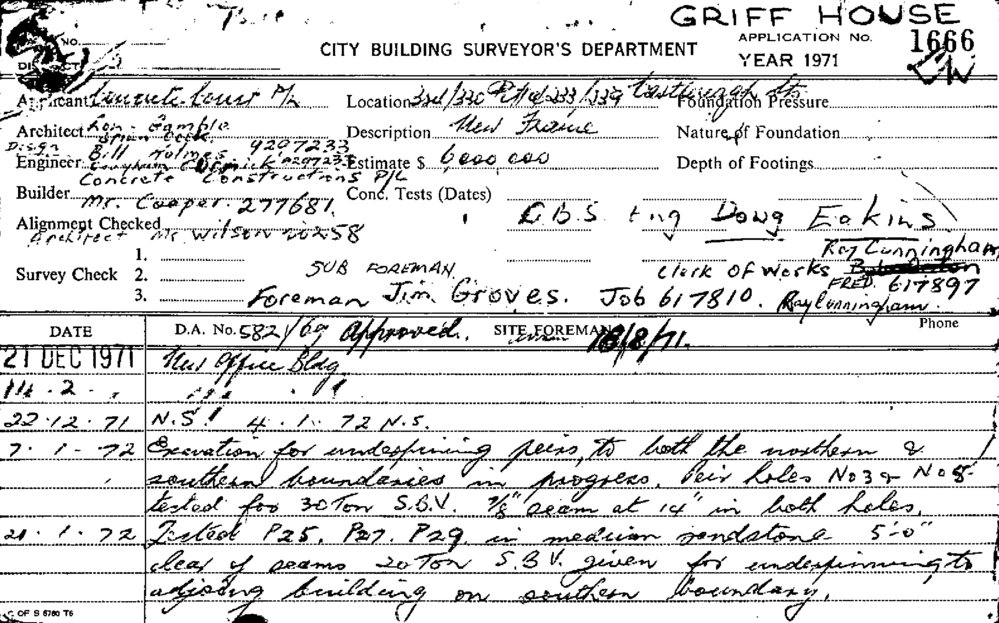 GRIFF HOUSE
NO.
CITY BUILDING SURVEYOR'S DEPARTMENT
APPLICATION No.
1666
YEAR 1971
DISTRICT
Applicant Concrete Const P/L
Location 324/330 Pitt & 233/239 Castlereagh St
Foundation Pressure
Architect Ron Gamble
Description New Frame
Nature of Foundation
Design Bill Holmes 9297233
Engineer
Estimate $ 6000 000
Depth of Footings
Concrete Constructions P/L
Builder Mr. Cooper. 277681.
Conc. Tests (Dates)
C.B.S. Eng Doug Eakins
Alignment Checked
Architect Mr Wilson 20258
Ray Cunningham
Survey Check 1.
2.
3.
SUB FOREMAN
Clerk of Works
FRED. 617897
Foreman Jim Groves. Job 617810. Ray Cunningham.
DATE
D.A. No. 582/69 Approved.
SITE FOREMAN
18/8/71.
Phone
21 DEC 1971 New Office Bldg.
14 . 2 .
22.12.71 N.S! 4.1.72 N.S.
7.1.72 Exavation for underpining peirs, to both the northern &
southern boundaries in progress. Peir holes No 3 & No 8
tested for 30 Ton S.B.V. 7/8" seam at 14" in both holes.
21.1.72 Tested P25. P27. P29. in medium sandstone 5'-0"
clear of seams 20 Ton S.B.V. given for underpinning to
adjoing building on southern boundary.
C OF S 6760 T6